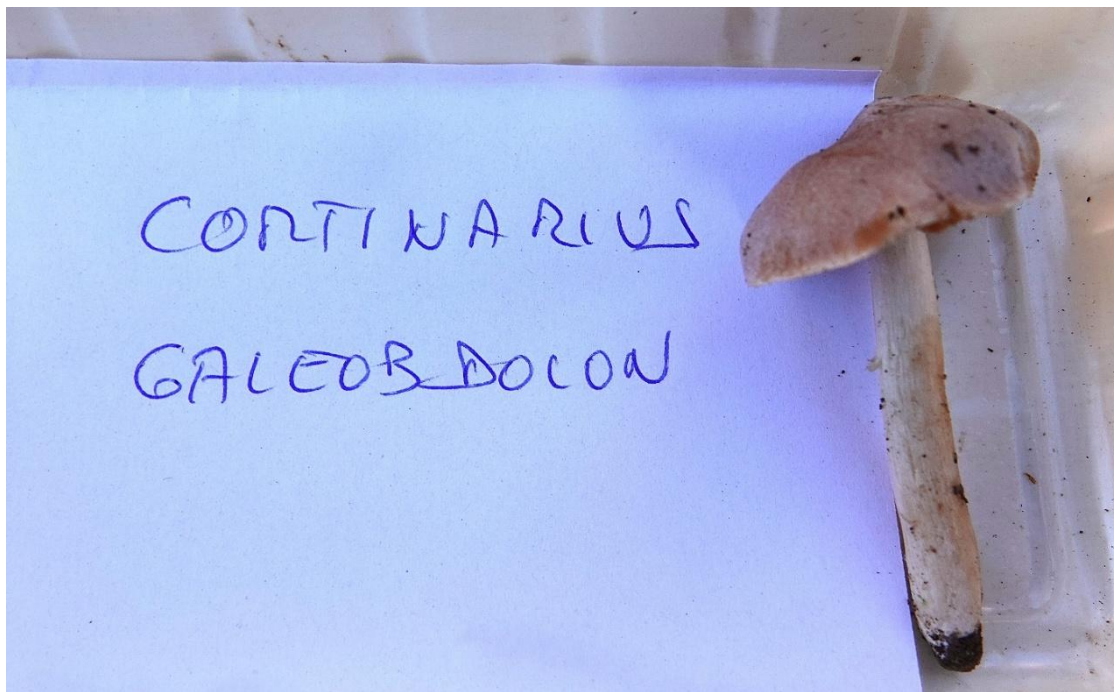 CORTINARIUS
GALEOBDOLON